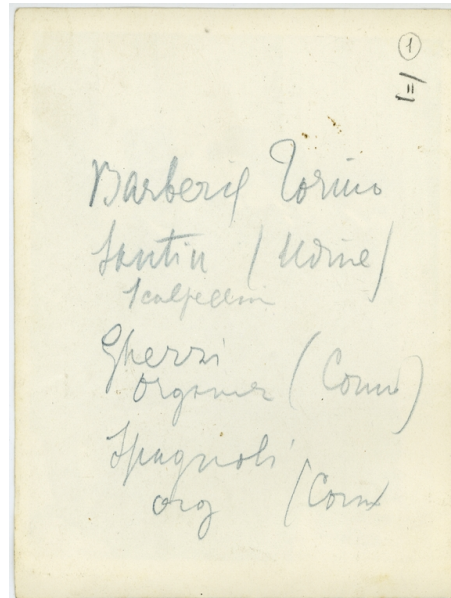 ①
Barberis Torino
Santin (Udine)
Scalpellin
Gherzi
(Como)
Spagnoli
org (Como